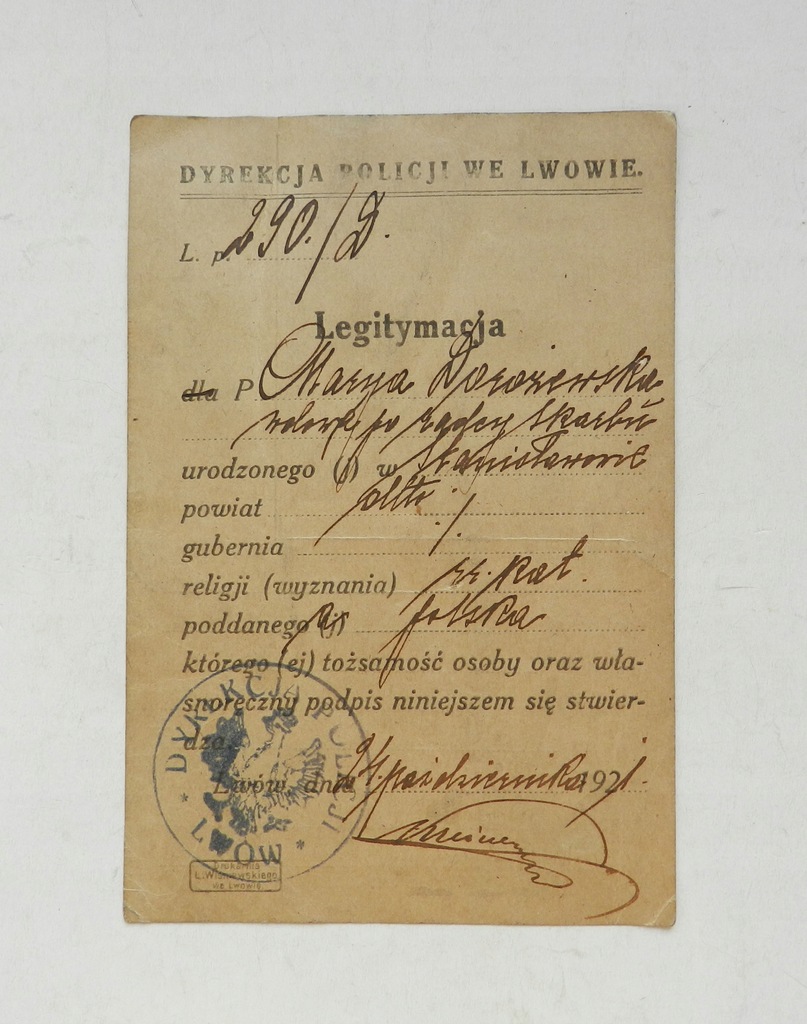 DYREKCJA POLICJI WE LWOWIE.
L. p. 290./D.
Legitymacja
dla P Marya Dorożewska
wdowa po radcy skarbu
urodzonego (j) w Stanisławowie
powiat dtto
gubernia /
religji (wyznania) rz. kat.
poddanego (j) polska
którego (ej) tożsamość osoby oraz wła-
snoręczny podpis niniejszem się stwier-
dza.
Lwów, dnia października 1921.
DYREKCJA POLICJI * LWÓW *
Drukarnia
L. Wiśniewskiego
we Lwowie.